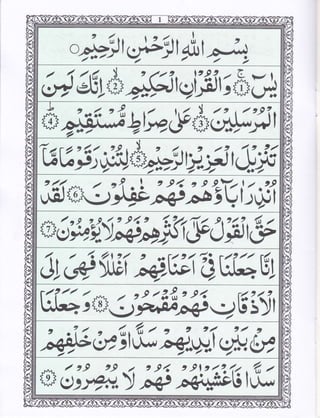 1
بِسْمِ اللهِ الرَّحْمٰنِ الرَّحِيْمِ
يٰسٓ ۚ ﴿1﴾ وَالْقُرْاٰنِ الْحَكِيْمِ ۙ ﴿2﴾ اِنَّكَ لَمِنَ
الْمُرْسَلِيْنَ ۙ ﴿3﴾ عَلٰى صِرَاطٍ مُّسْتَقِيْمٍ ؕ ﴿4﴾
تَنْزِيْلَ الْعَزِيْزِ الرَّحِيْمِ ۙ ﴿5﴾ لِتُنْذِرَ قَوْمًا مَّآ
اُنْذِرَ اٰبَآؤُهُمْ فَهُمْ غٰفِلُوْنَ ﴿6﴾ لَقَدْ
حَقَّ الْقَوْلُ عَلٰٓى اَكْثَرِهِمْ فَهُمْ لَا يُؤْمِنُوْنَ ﴿7﴾
اِنَّا جَعَلْنَا فِىْٓ اَعْنَاقِهِمْ اَغْلٰلًا فَهِىَ اِلَى
الْاَذْقَانِ فَهُمْ مُّقْمَحُوْنَ ﴿8﴾ وَجَعَلْنَا
مِنْۢ بَيْنِ اَيْدِيْهِمْ سَدًّا وَّمِنْ خَلْفِهِمْ
سَدًّا فَاَغْشَيْنٰهُمْ فَهُمْ لَا يُبْصِرُوْنَ ﴿9﴾